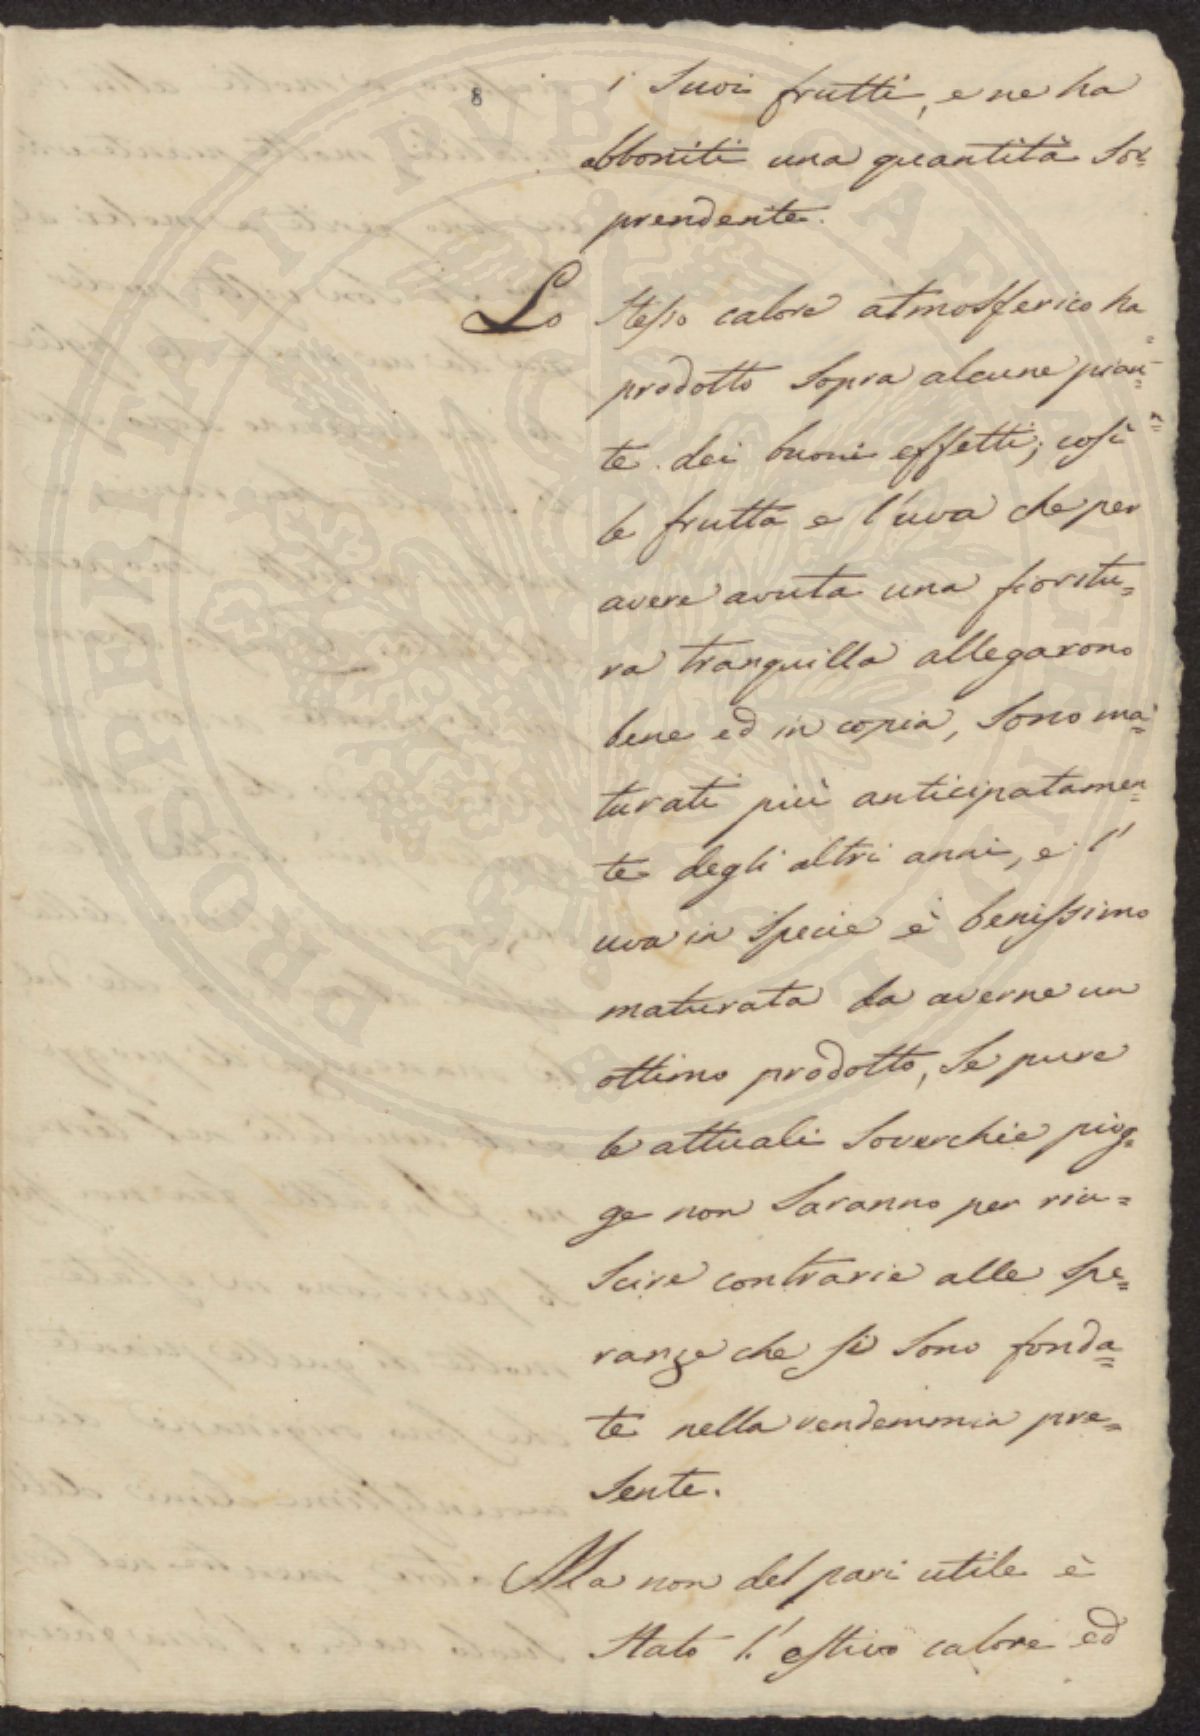 8
i suoi frutti, e ne ha
abboniti una quantità sor=
prendente.
Lo stesso calore atmosferico ha
prodotto sopra alcune pian=
te dei buoni effetti; così
le frutta e l'uva che per
avere avuta una fioritu=
ra tranquilla allegarono
bene ed in copia, sono ma=
turati più anticipatamen=
te degli altri anni, e l'
uva in specie è benissimo
maturata da averne un
ottimo prodotto, se pure
le attuali soverchie piog=
ge non saranno per riu=
scire contrarie alle spe=
ranze che si sono fonda=
te nella vendemmia pre=
sente.
Ma non del pari utile è
stato l'estivo calore ed
PROSPERITATI PVBLICAE AVGENDAE